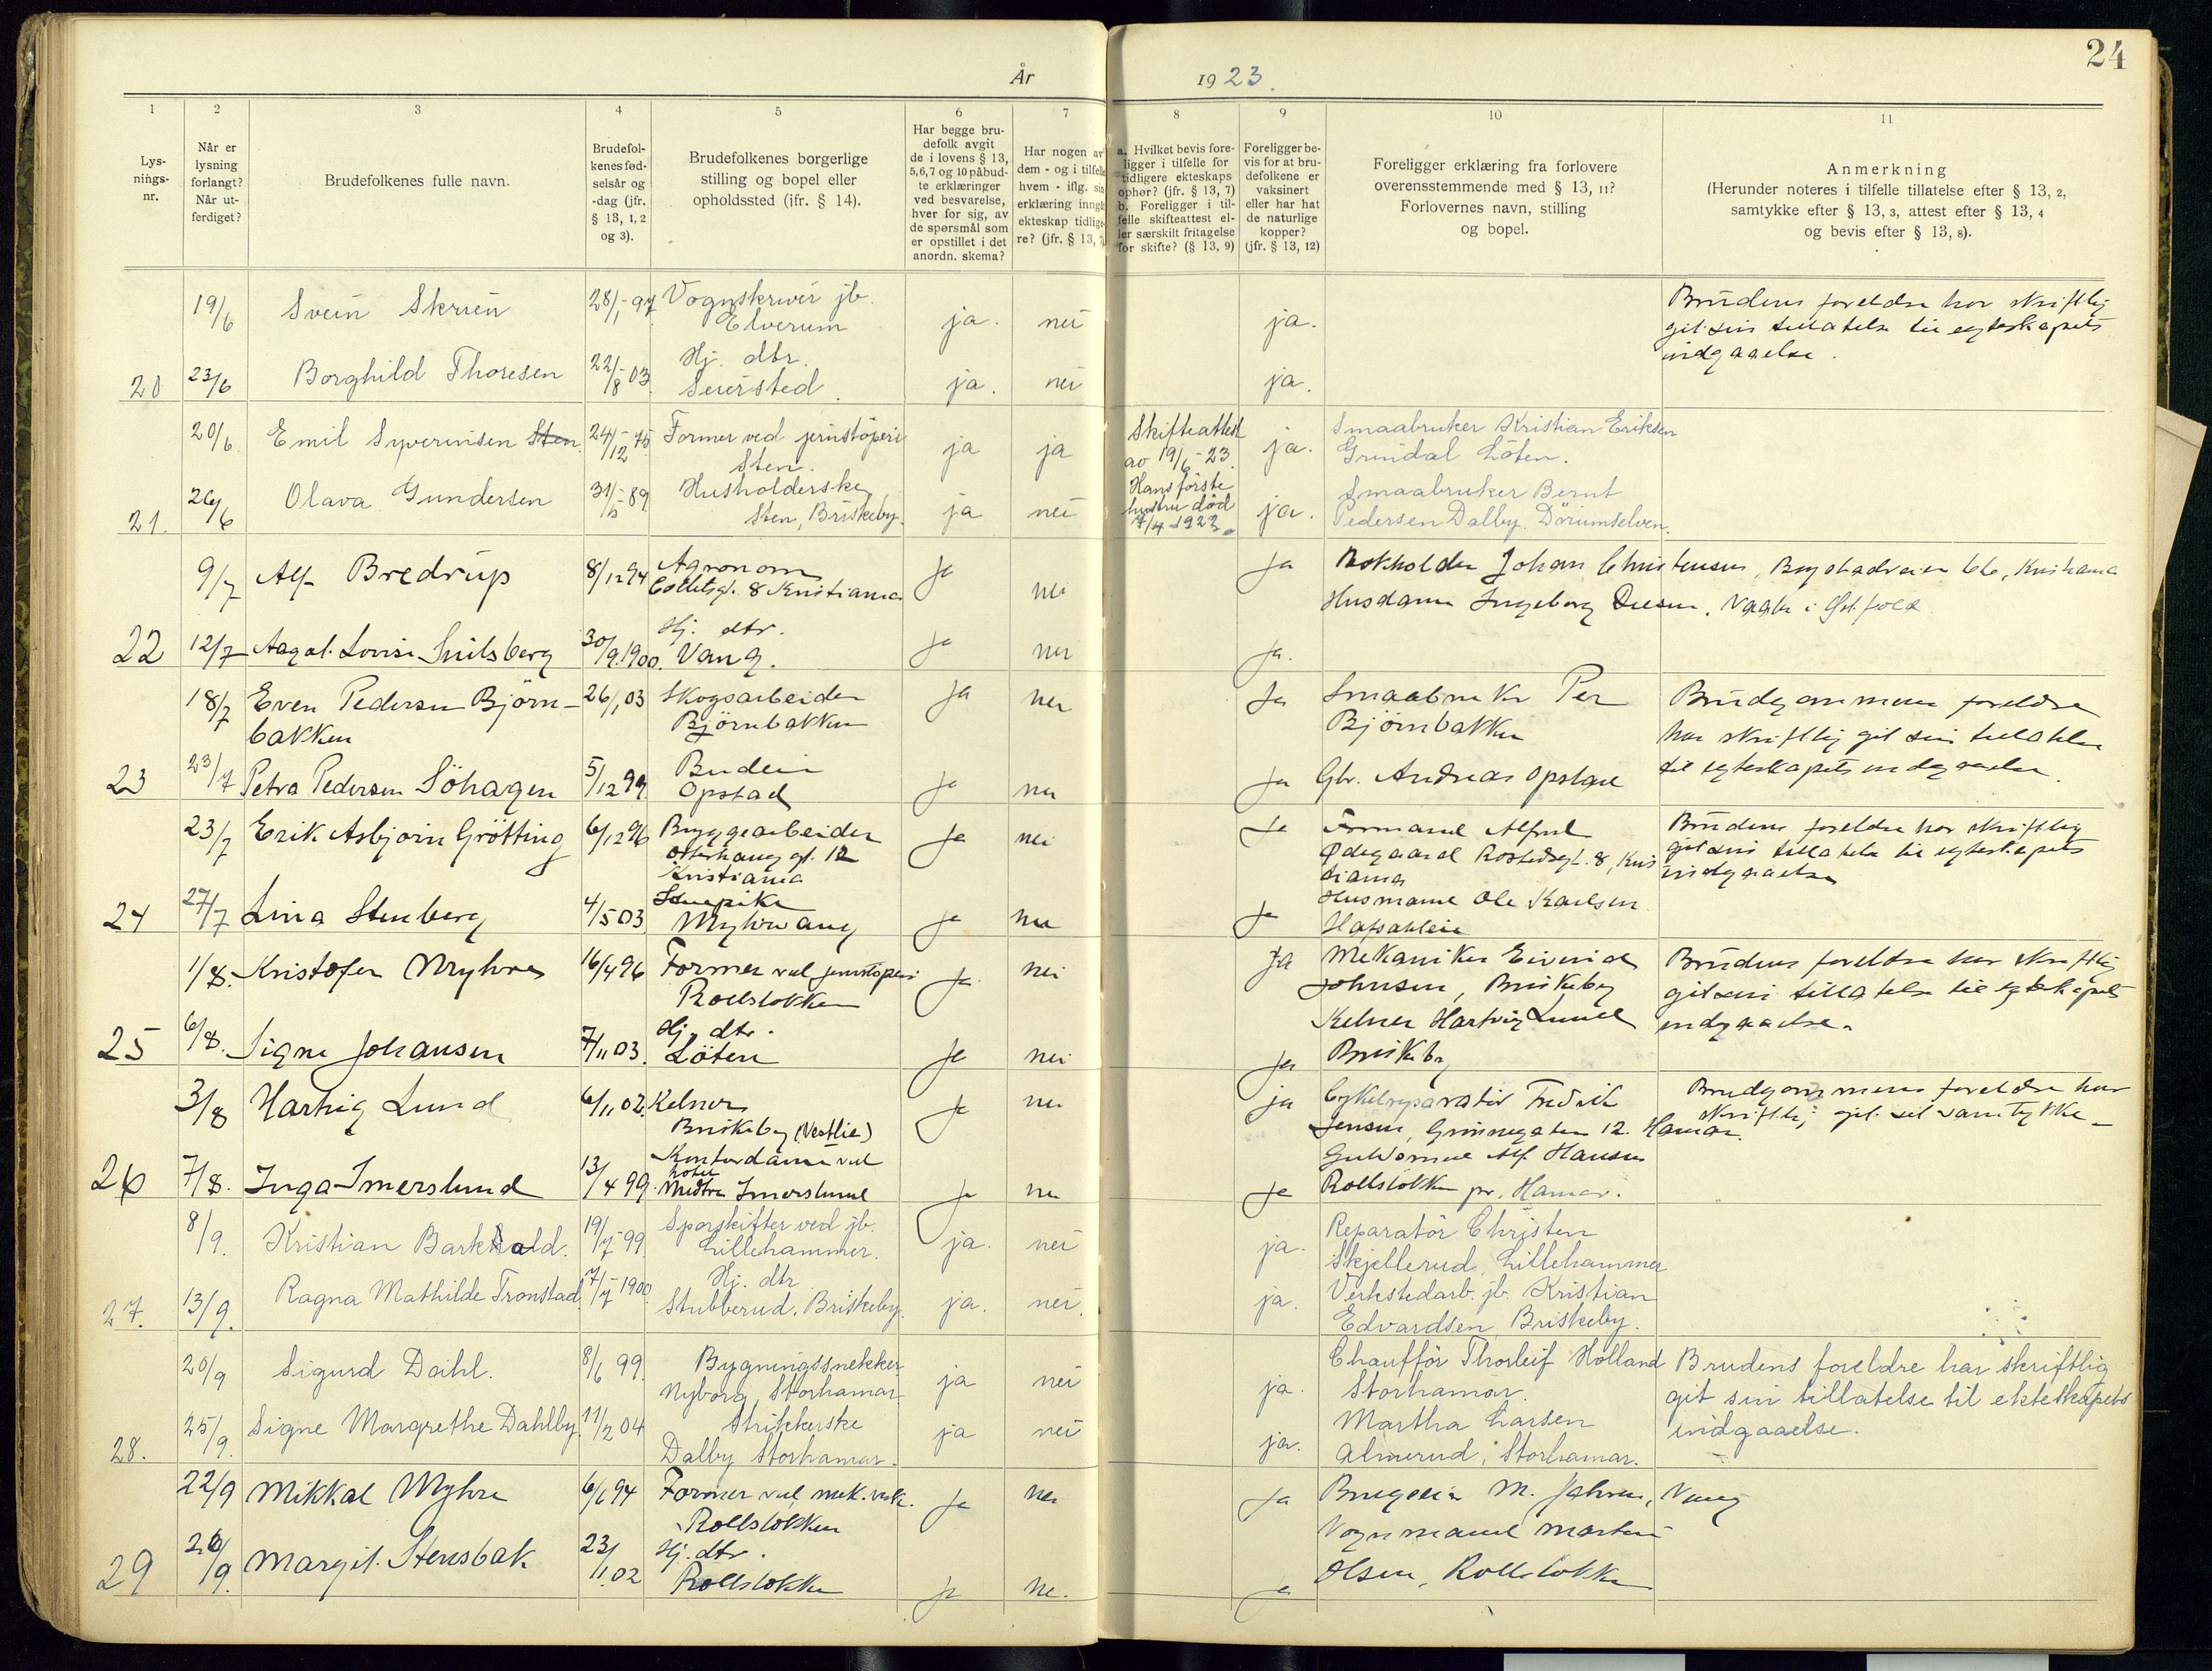 24
År 1923.
1 2 3 4 5 6 7 8 9 10 11
Lys-
nings-
nr.
Når er
lysning
forlangt?
Når ut-
ferdiget?
Brudefolkenes fulle navn.
Brudefol-
kenes fød-
selsår og
-dag (jfr.
§ 13, 1, 2
og 3).
Brudefolkenes borgerlige
stilling og bopel eller
opholdssted (jfr. § 14).
Har begge bru-
defolk avgit
de i lovens § 13,
5,6,7 og 10 påbud-
te erklæringer
ved besvarelse,
hver for sig, av
de spørsmål som
er opstillet i det
anordn. skema?
Har nogen av
dem - og i tilfelle
hvem - iflg. sin
erklæring inngå
ekteskap tidlige-
re? (jfr. § 13, 7
a. Hvilket bevis fore-
ligger i tilfelle for
tidligere ekteskaps
ophør? (jfr. § 13, 7)
b. Foreligger i til-
felle skifteattest el-
ler særskilt fritagelse
for skifte? (§ 13, 9)
Foreligger be-
vis for at bru-
defolkene er
vaksinert
eller har hat
de naturlige
kopper?
(jfr. § 13, 12)
Foreligger erklæring fra forlovere
overensstemmende med § 13, 11?
Forlovernes navn, stilling
og bopel.
Anmerkning
(Herunder noteres i tilfelle tillatelse efter § 13, 2,
samtykke efter § 13, 3, attest efter § 13, 4
og bevis efter § 13, 8).
19/6 Svein Skrien 28/1-97 Vognskriver jb. ja. nei ja. Brudens foreldre har skriftlig
Elverum git sin tillatelse til egteskapets
indgaaelse.
20 23/6 Borghild Thoresen 22/8-03 Hj. dtr. ja. nei ja.
Seiersted.
20/6 Emil Syverinsen Sten. 24/12-75 Former ved jernstöperi ja ja Skifteattest ja. Smaabruker Kristian Eriksen
Sten. av 19/6-23. Grindal Löten.
21. 26/6 Olava Gundersen 31/5-89 Husholderske ja nei Hans förste ja. Smaabruker Bernt
Sten, Briskeby. hustru död Pedersen Dalby. Dörumselven.
7/4-1922.
9/7 Alf Bredrup 8/12 94 Agronom ja nei ja Bokholder Johan Christensen, Bogstadveien 66, Kristiania
Colletsgt. 8 Kristiania Husdame Ingeborg
22 12/7 Aagot Lovise Smilsberg 30/9.1900. Hj. dtr. ja nei ja.
Vang.
18/7 Even Pedersen Björn- 26/1 03 Skogsarbeider ja nei ja Smaabruker Per Brudgommens foreldre
bakken Björnbakken Björnbakken har skriftlig git sin tillatelse
23 23/7 Petra Pedersen Söhagen 5/12 99. Budeie ja nei ja Gbr. Andreas Opstad til egteskapets indgaaelse.
Opstad
23/7 Erik Asbjørn Grötting 6/12 96 Bryggearbeider ja nei ja Formand Alfred Brudens foreldre har skriftlig
Osterhausgt. 12 Ødegaard Rostedsgt. 8, Kris git sin tillatelse til egteskapets
Kristiania tiania indgaaelse
24 27/7 Lina Stenberg 4/5 03 Stuepike ja nei ja Husmand Ole Karlsen
Myhrvang
1/8. Kristofer Myhre 16/4 96 Former ved jernstöperi ja nei ja Mekaniker Eivind Brudens foreldre har skriftlig
Rollslökken Johnsen, Briskeby git sin tillatelse til egteskapets
25 6/8. Signe Johansen 7/11 03. Hj. dtr. ja nei ja Kelner Hartvig Lund indgaaelse.
Löten Briskeby
3/8 Hartvig Lund 6/11 02. Kelner ja nei ja Cykelreparatör Fredrik Brudgommens foreldre har
Briskeby (Vestlie) Jensen, Grönnegaten 12. Hamar. skriftlig git sit samtykke.
26 7/8. Inga Imerslund 13/4 99. Kontordame ved ja nei ja Guldsmed Alf Hansen
hotel Rollslökken pr. Hamar.
Midtre Imerslund
8/9. Kristian Barkhald. 19/7-99. Sporskifter ved jb. ja. nei ja. Reparatör Christen
Lillehammer. Skjellerud, Lillehammer
27. 13/9. Ragna Mathilde Tronstad 7/7-1900. Hj. dtr. ja. nei. ja. Verkstedarb. jb. Kristian
Stubberud. Briskeby. Edvardsen, Briskeby.
20/9 Sigurd Dahl. 8/6 99. Bygningssnekker ja nei ja. Chaufför Thorleif Holland Brudens foreldre har skriftlig
Nyborg, Storhamar Storhamar. git sin tillatelse til ekteskapets
28. 25/9. Signe Margrethe Dahlby. 11/2 04 Strikkerske ja nei ja. Martha Larsen indgaaelse.
Dalby Storhamar. Almerud, Storhamar.
22/9 Mikkal Myhre 6/6 94 Former ved mek. verk. ja nei ja M. Vang
Rollslökken Vognmand Martin
29 26/9. Margit Stensbak 23/1.02 Hj. dtr. ja nei. ja Olsen, Rollslökken
Rollslökken